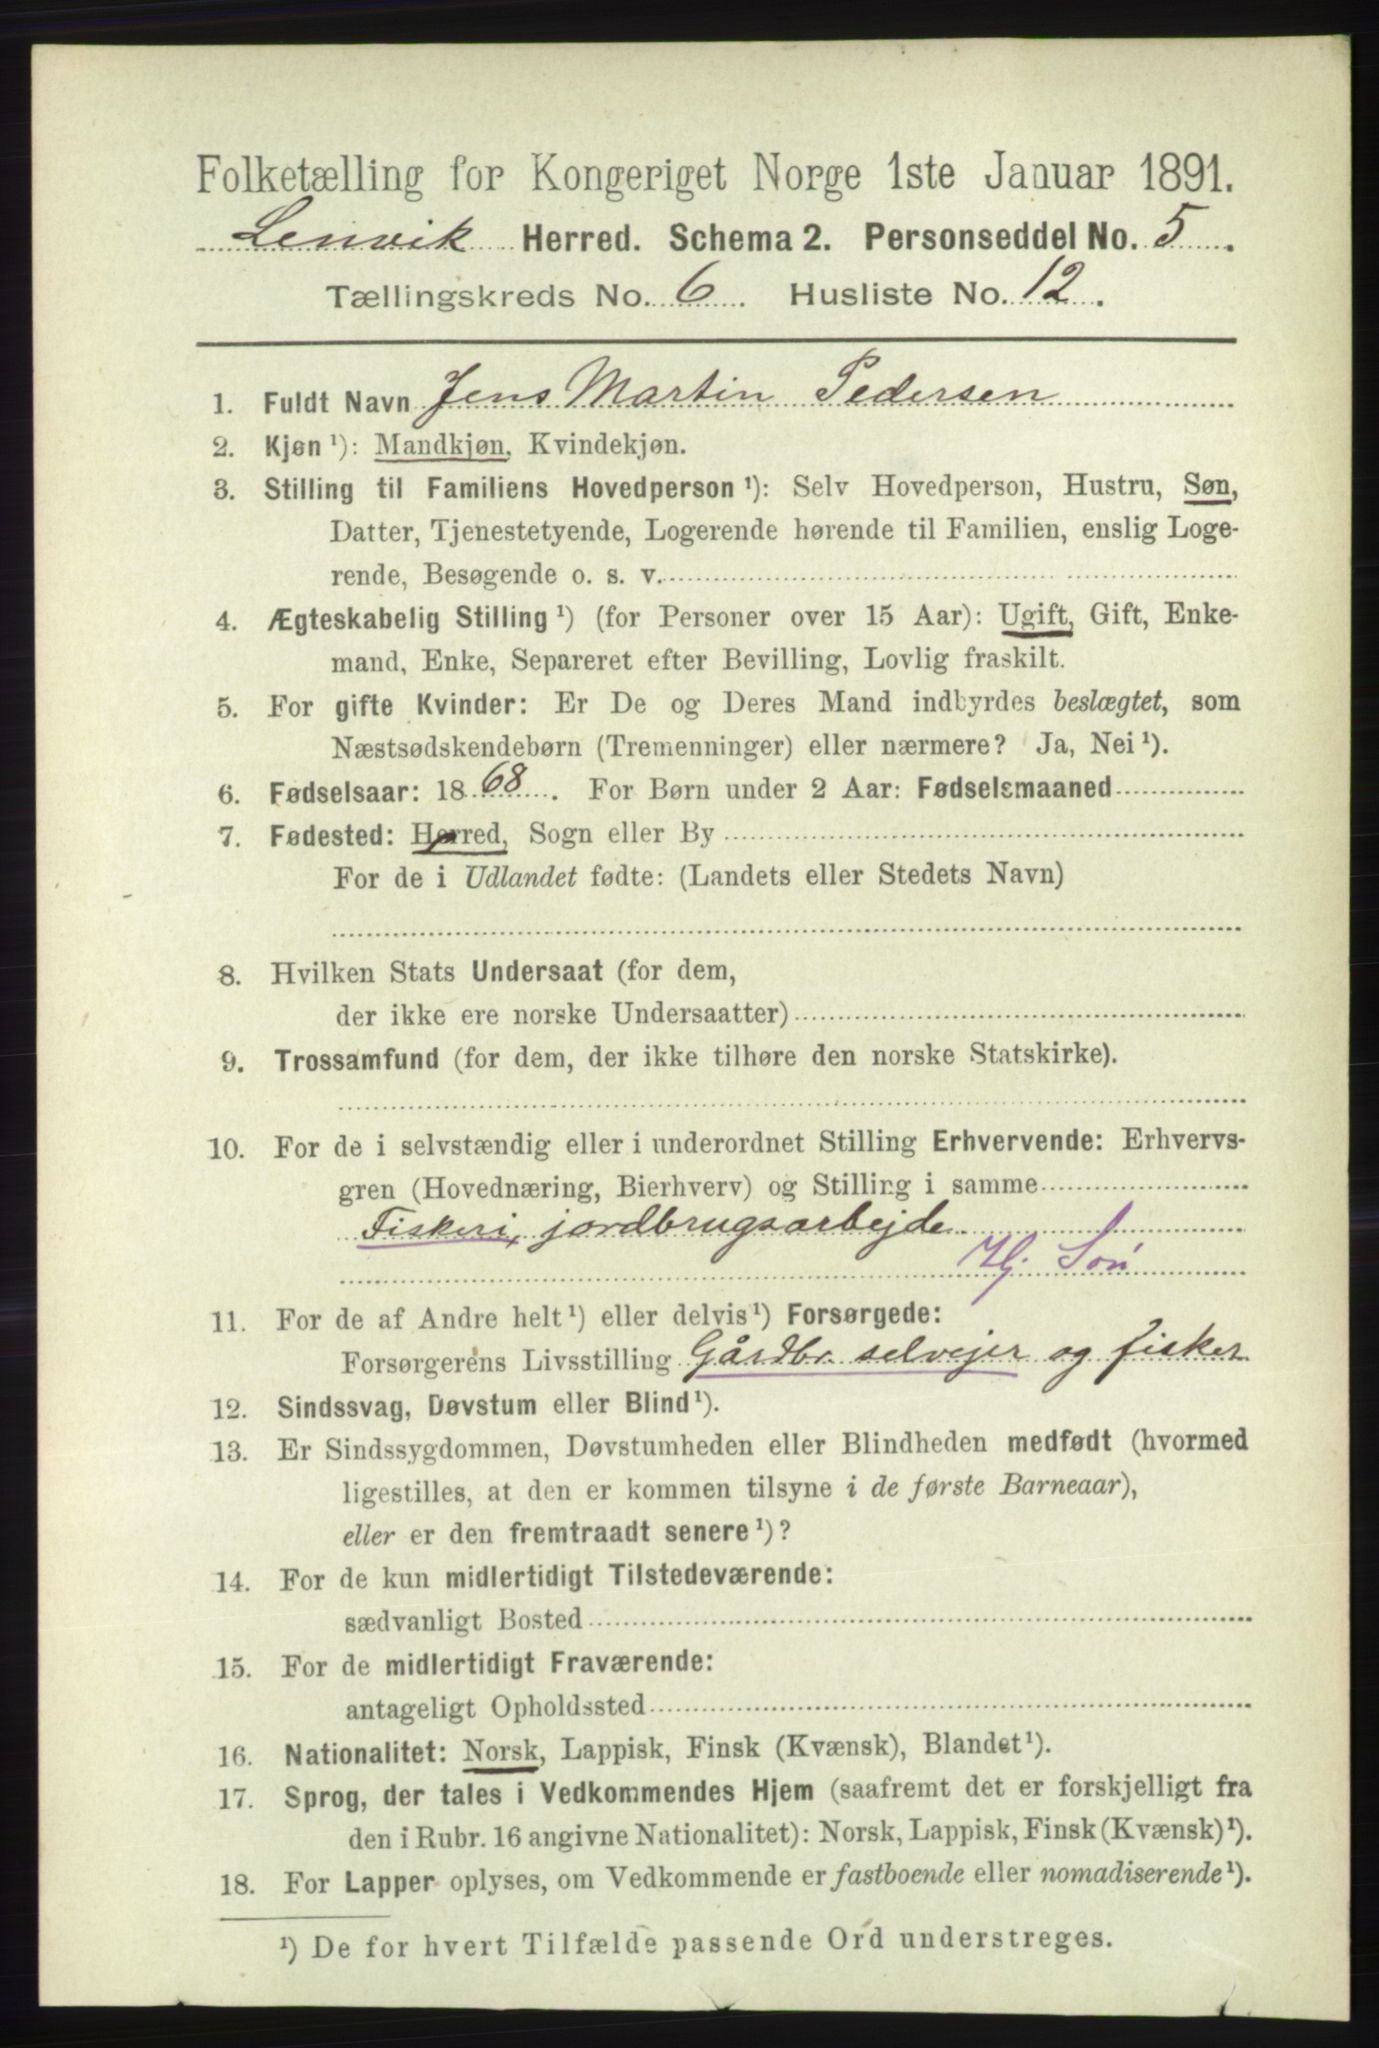 Folketælling for Kongeriget Norge 1ste Januar 1891.
Lenvik Herred. Schema 2. Personseddel No. 5.
Tællingskreds No. 6. Husliste No. 12.
1. Fuldt Navn Jens Martin Pedersen
2. Kjøn ¹): Mandkjøn, Kvindekjøn.
3. Stilling til Familiens Hovedperson ¹): Selv Hovedperson, Hustru, Søn,
Datter, Tjenestetyende, Logerende hørende til Familien, enslig Loge-
rende, Besøgende o. s. v.
4. Ægteskabelig Stilling ¹) (for Personer over 15 Aar): Ugift, Gift, Enke-
mand, Enke, Separeret efter Bevilling, Lovlig fraskilt.
5. For gifte Kvinder: Er De og Deres Mand indbyrdes beslægtet, som
Næstsødskendebørn (Tremenninger) eller nærmere? Ja, Nei ¹).
6. Fødselsaar: 1868. For Børn under 2 Aar: Fødselsmaaned
7. Fødested: Herred, Sogn eller By
For de i Udlandet fødte: (Landets eller Stedets Navn)
8. Hvilken Stats Undersaat (for dem,
der ikke ere norske Undersaatter)
9. Trossamfund (for dem, der ikke tilhøre den norske Statskirke).
10. For de i selvstændig eller i underordnet Stilling Erhvervende: Erhvervs-
gren (Hovednæring, Bierhverv) og Stilling i samme
Fiskeri, jordbrugsarbejde.
Hj. Søn
11. For de af Andre helt ¹) eller delvis ¹) Forsørgede:
Forsørgerens Livsstilling Gårdbr. selvejer og fisker
12. Sindssvag, Døvstum eller Blind ¹).
13. Er Sindssygdommen, Døvstumheden eller Blindheden medfødt (hvormed
ligestilles, at den er kommen tilsyne i de første Barneaar),
eller er den fremtraadt senere ¹)?
14. For de kun midlertidigt Tilstedeværende:
sædvanligt Bosted
15. For de midlertidigt Fraværende:
antageligt Opholdssted
16. Nationalitet: Norsk, Lappisk, Finsk (Kvænsk), Blandet ¹).
17. Sprog, der tales i Vedkommendes Hjem (saafremt det er forskjelligt fra
den i Rubr. 16 angivne Nationalitet): Norsk, Lappisk, Finsk (Kvænsk) ¹).
18. For Lapper oplyses, om Vedkommende er fastboende eller nomadiserende ¹).
¹) De for hvert Tilfælde passende Ord understreges.